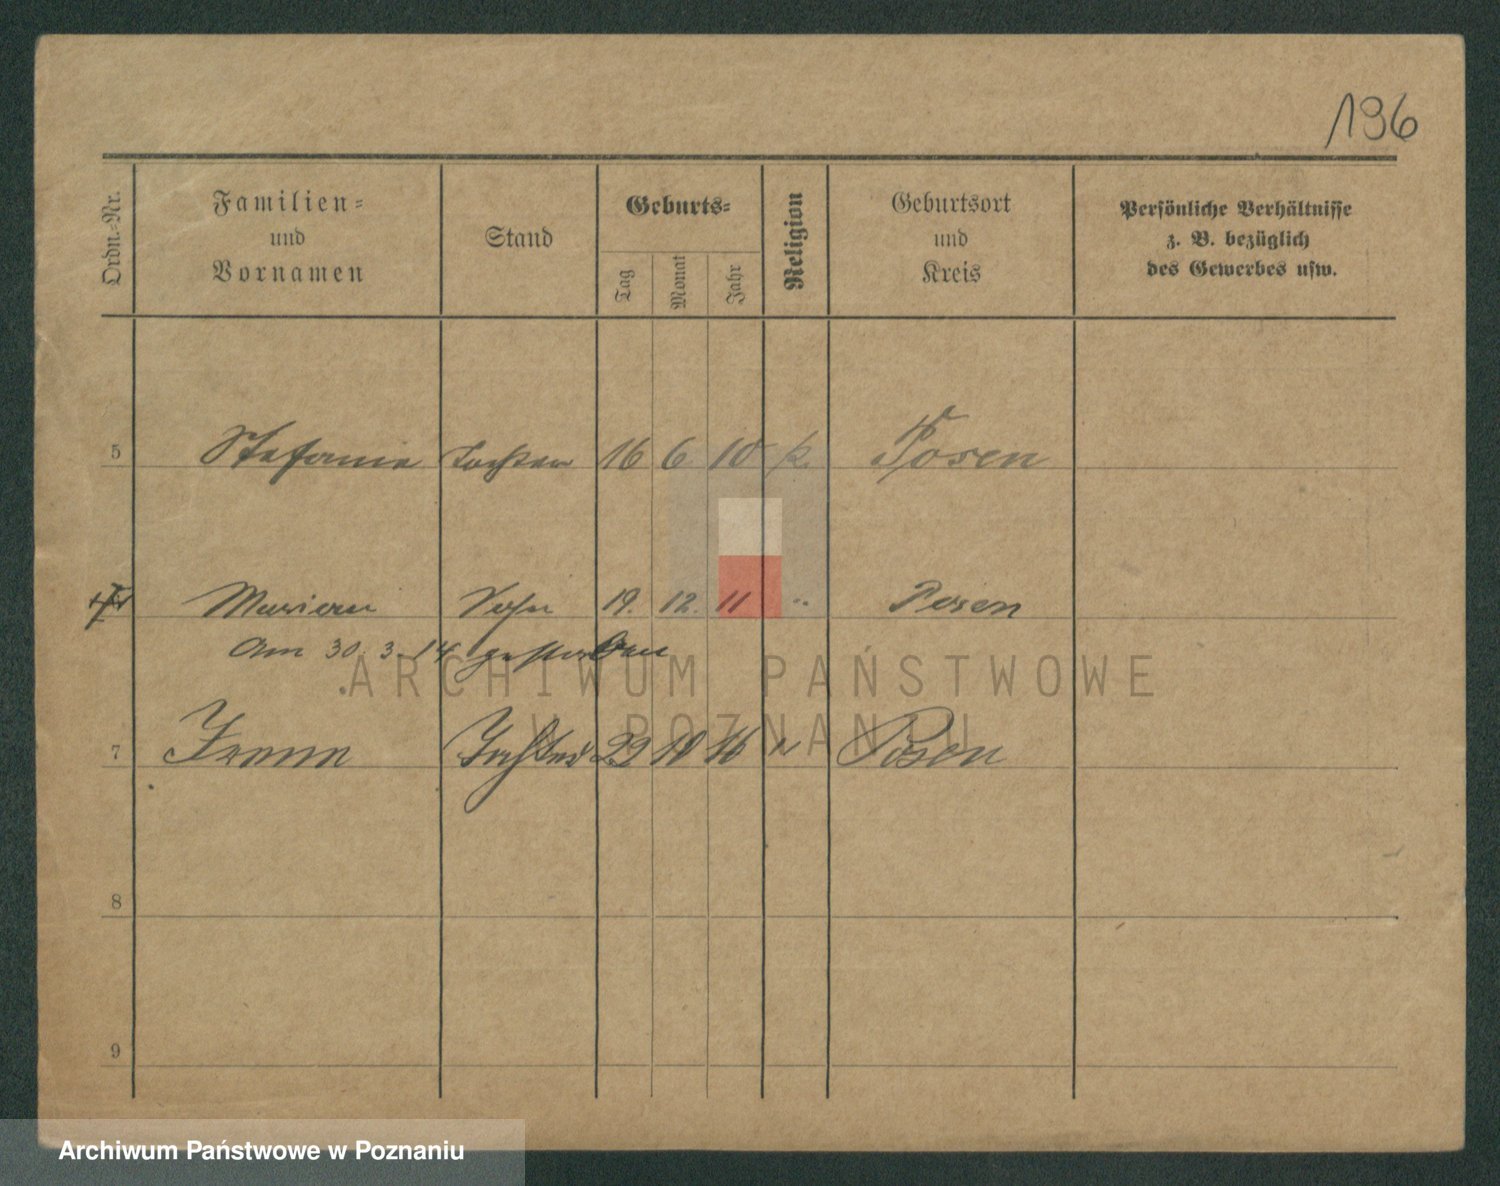 196
Ordn.-Nr.
Familien-
und
Vornamen
Stand
Geburts-
Tag
Monat
Jahr
Religion
Geburtsort
und
Kreis
Persönliche Verhältnisse
z. B. bezüglich
des Gewerbes usw.
5 Stefanie Tochter 16 6. 10 k. Posen
Marian Sohn 19. 12. 11 " Posen
Am 30.3.14 gestorben
ARCHIWUM PAŃSTWOWE
W POZNANIU
7 Irena Tochter 29 10 16 " Posen
8
9
Archiwum Państwowe w Poznaniu